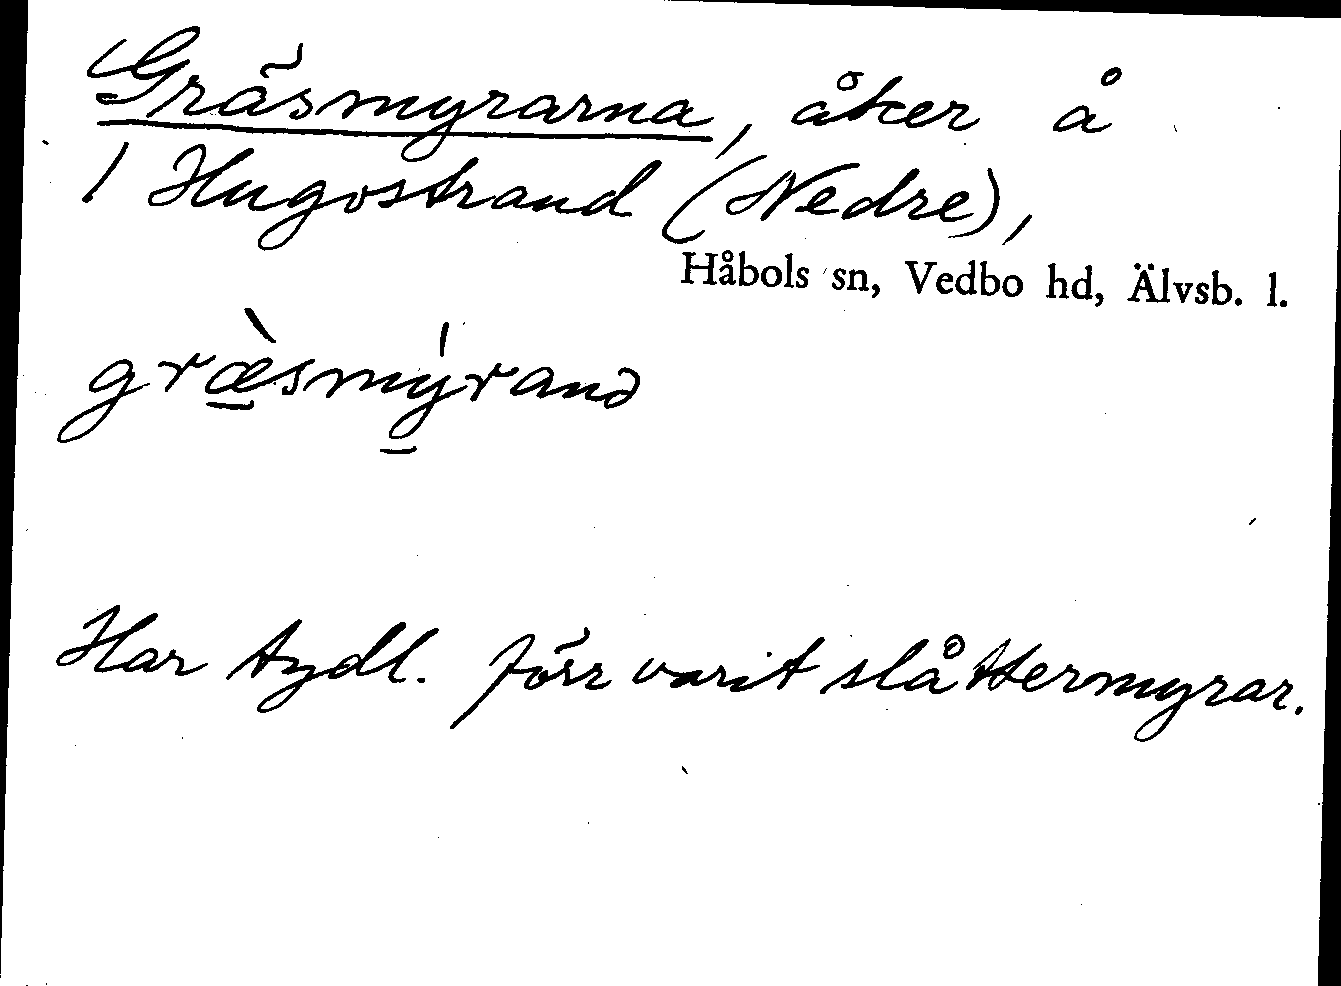 Gräsmyrarna, åker å
1 Hugostrand (Nedre),
Håbols sn, Vedbo hd, Älvsb. l.
græ̀smýranə
Har tydl. förr varit slåttermyrar.